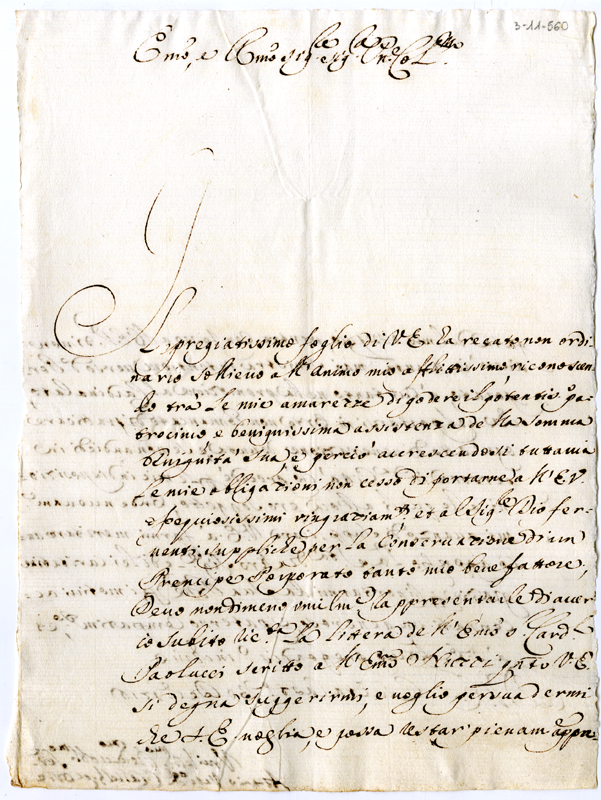 3-11-560
Emo, e Rmo Sig.re e Sig.
Il pregiatissimo foglio di V. E. ha recato non ordi-
nario sollievo all'animo mio afflittissimo, riconoscen-
do trà le mie amarezze di godere il potentis.o pa-
trocinio e benignissima assistenza della somma
benignità sua, e perciò accrescendosi tuttavia
le mie obligationi non cesso di portarne all'E. V.
ossequiosissimi ringratiam.ti et al Sig.re Dio fer-
venti suppliche per la conservatione di un
Prencipe Porporato tanto mio benefattore;
Devo nondimeno umilm.te rappresentarle di aver
io subito la littera dell'Emo Card.l
Paolucci scritto a l'Emo q.nto V. E.
si degna suggerirmi, e voglio persuadermi
che S. E. voglia, e possa restar pienam.